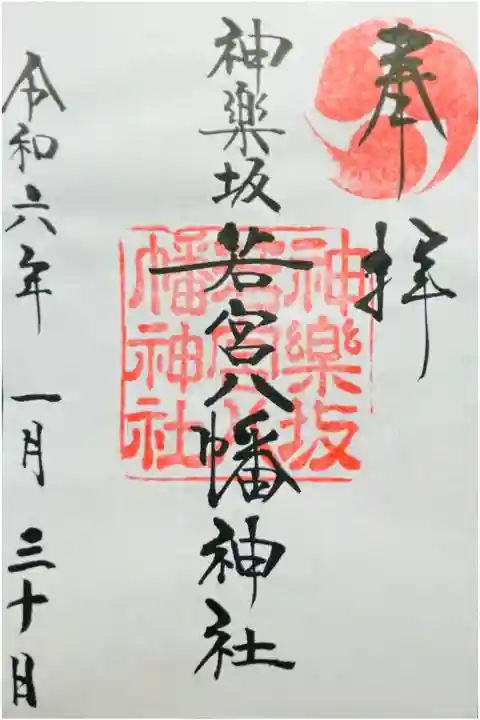 奉拝
神樂坂若宮八幡神社
神樂坂
若宮八
幡神社
令和六年 一月 三十日